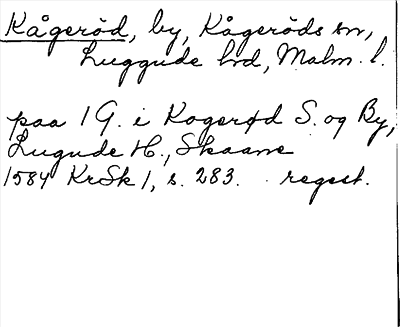 Kågeröd, by, Kågeröds sn,
Luggude hd, Malm. l.
paa 1 G. i Kogerød S. og By,
Lugude H., Skaane
1584 KrSk 1, s. 283. regest.